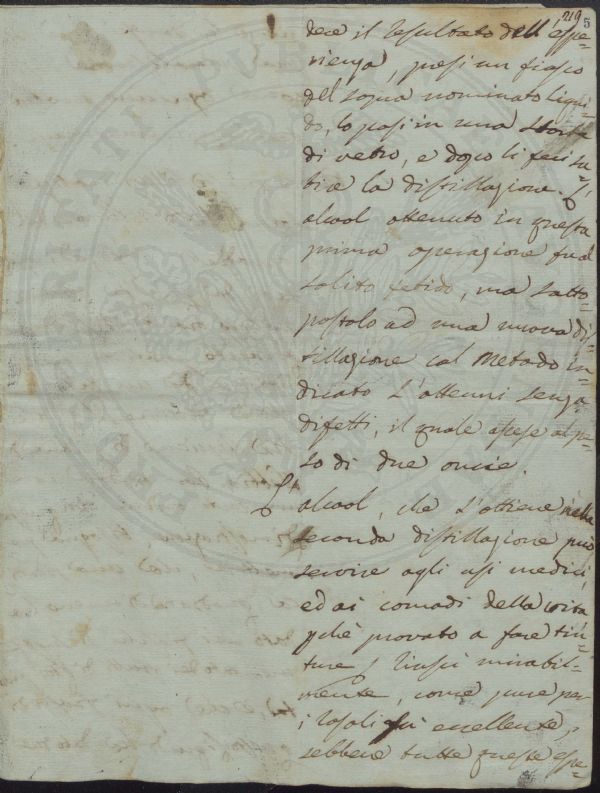 219 5
dere il resultato dell'espe=
rienza, presi un fiasco
del sopra nominato liqui=
do, lo posi in una storta
di vetro, e dopo li feci su=
bire la distillazione. L'
alcool ottenuto in questa
prima operazione fu al
solito fetido, ma sotto=
postolo ad una nuova di=
stillazione col metodo in=
dicato l'ottenni senza
difetti, il quale ascese al pe=
so di due oncie.
L'alcool, che s'ottiene nella
seconda distillazione può
servire agli usi medici,
ed ai comodi della vita
pchè provato a fare tin=
ture, riuscì mirabil=
mente, come pure per
i rosoli fù excellente,
sebbene tutte queste espe=